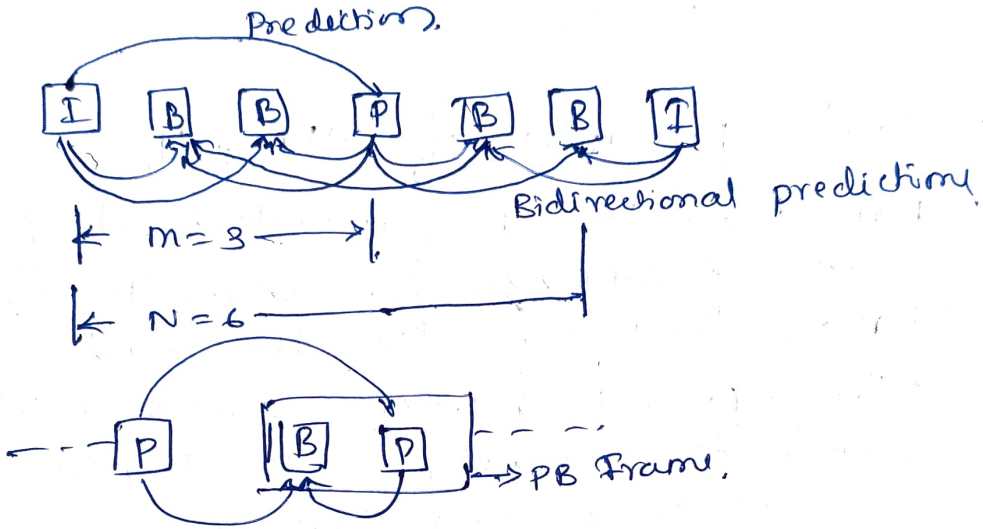 Prediction.
I B B P B B I
Bidirectional prediction
M = 3
N = 6
P B P
PB Frame.